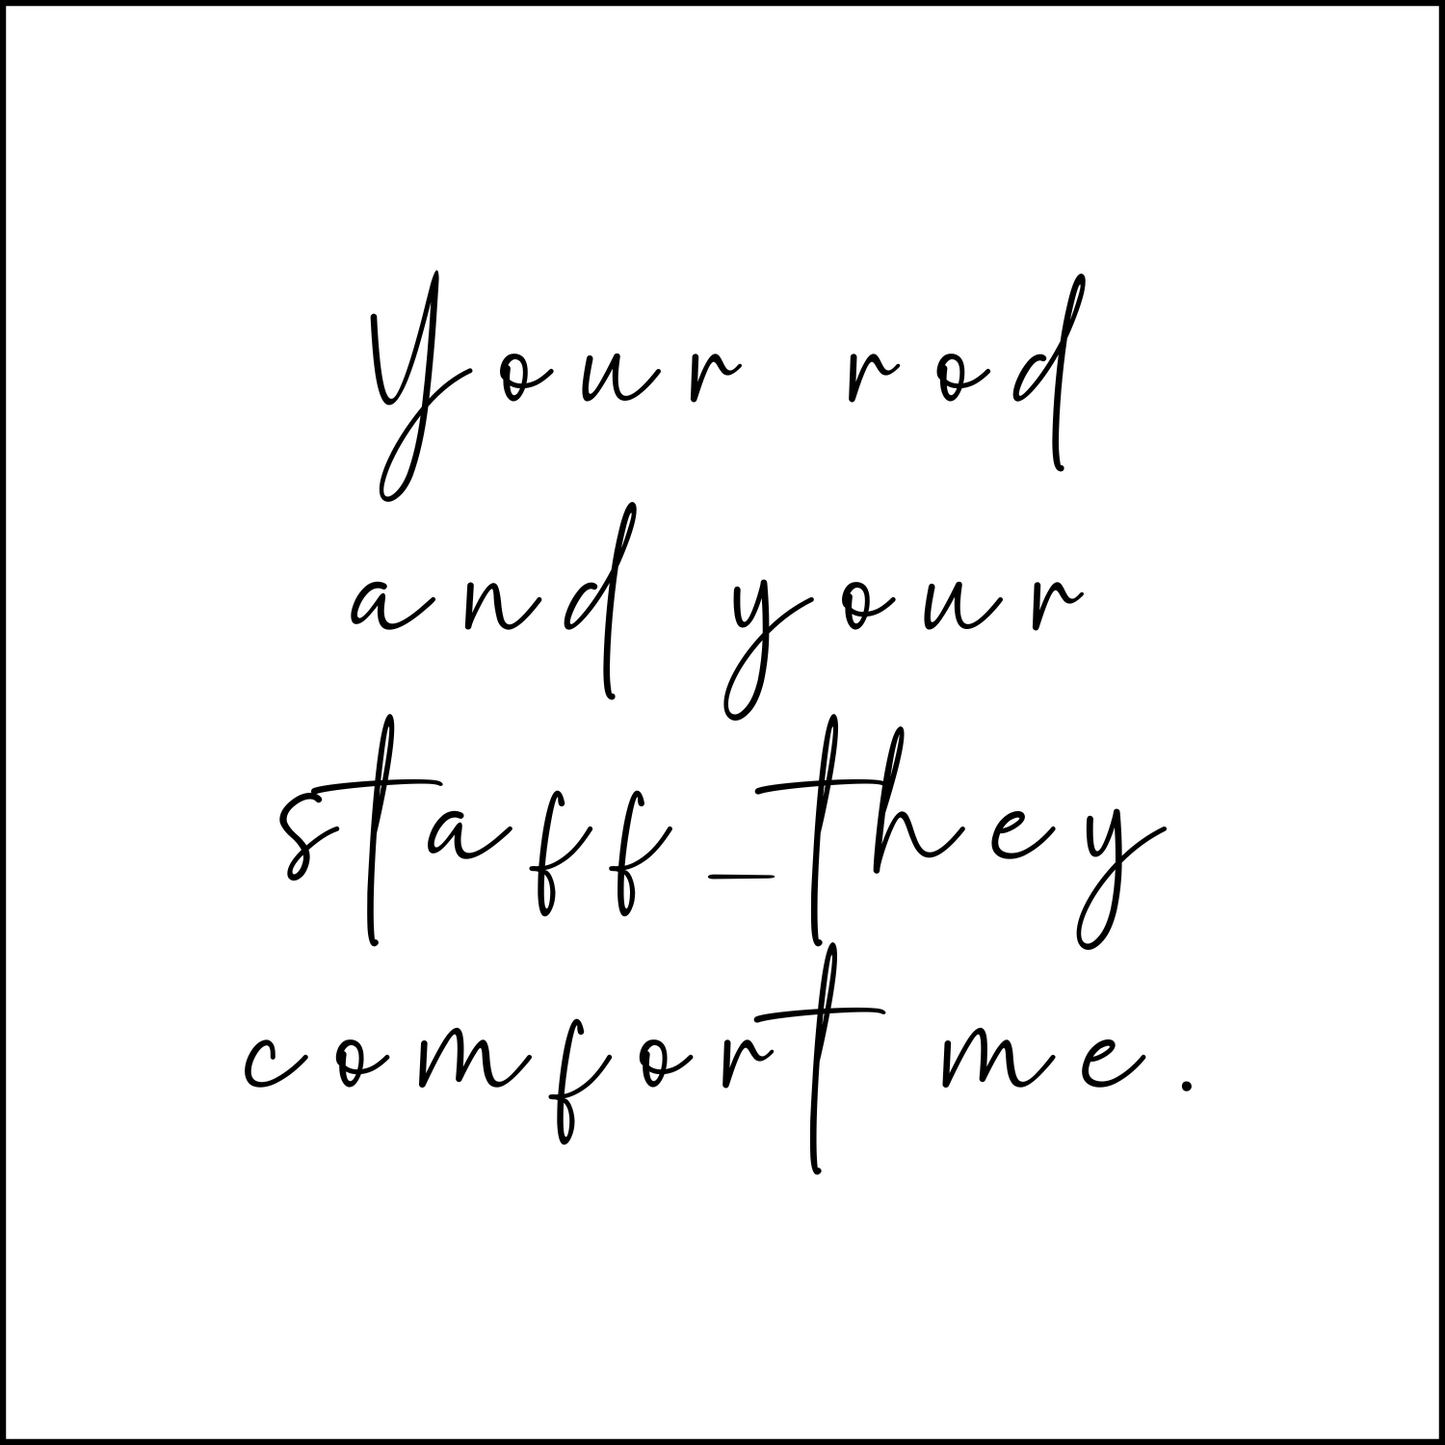 Your rod
and your
staff_they
comfort me.